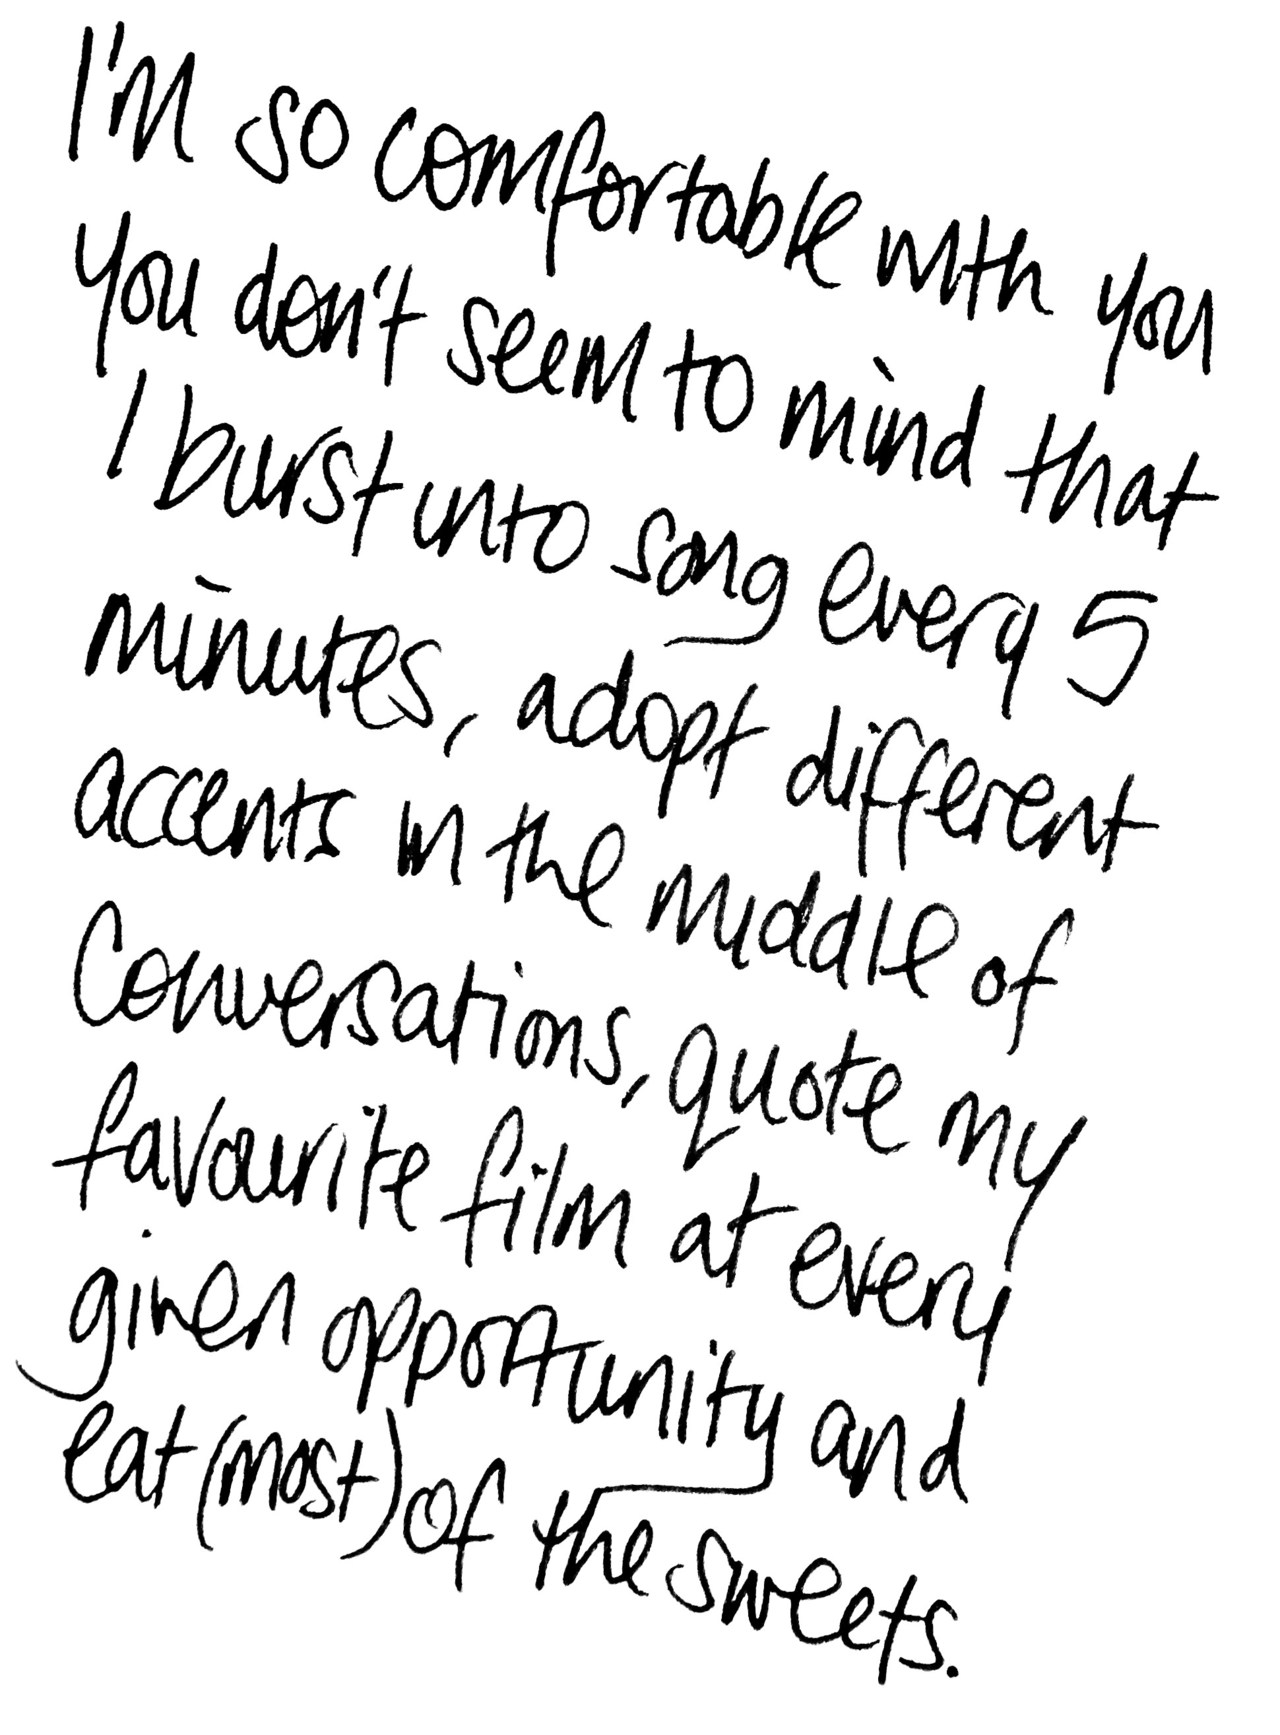 I'm so comfortable with you
you don't seem to mind that
I burst into song every 5
minutes, adopt different
accents in the middle of
Conversations, quote my
favourite film at every
given opportunity and
eat (most) of the sweets.